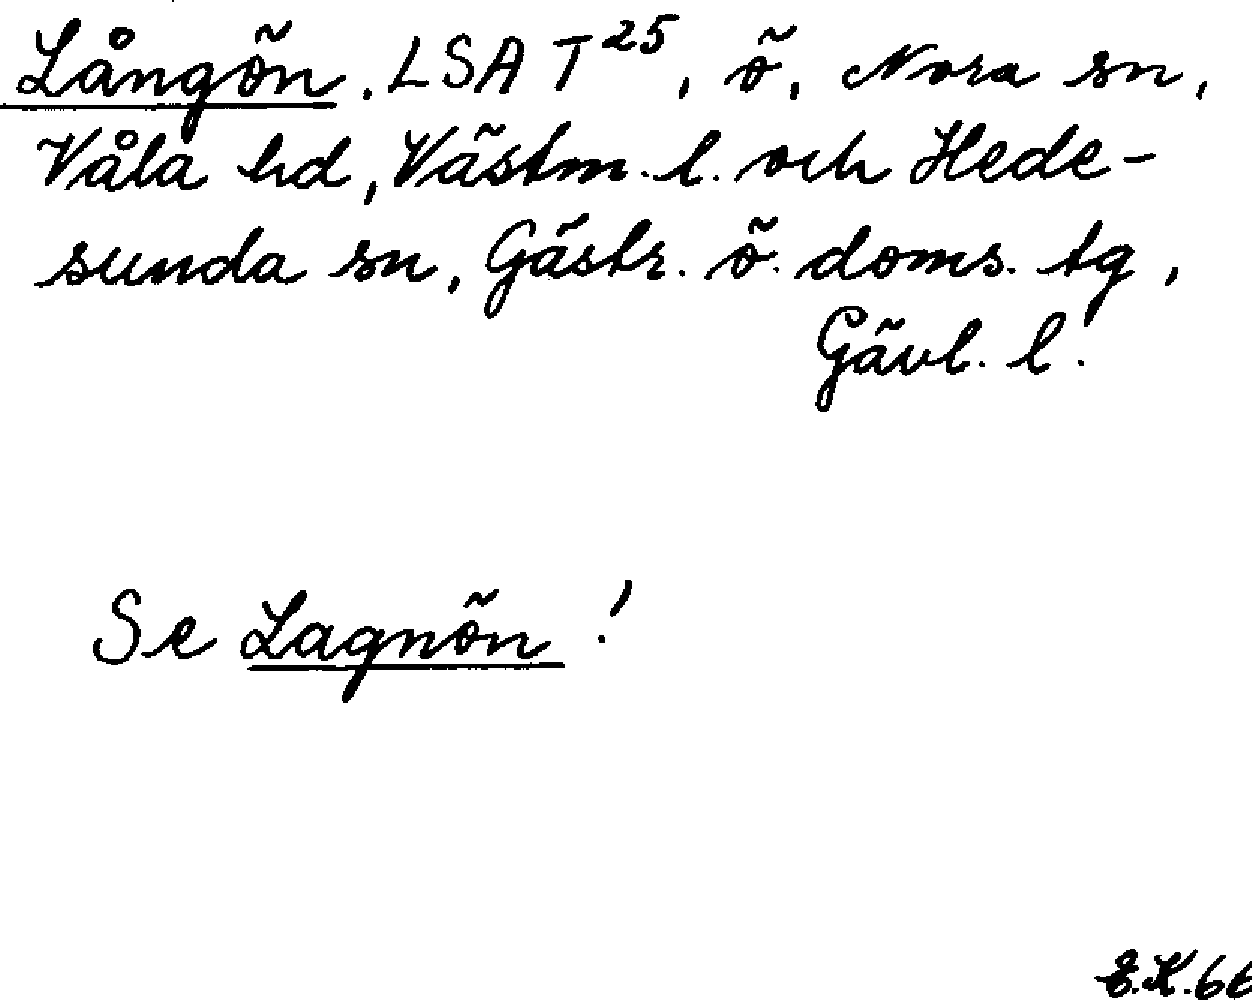 Långön. LSA T25, ö, Nora sn,
Våla hd, Västm. l. och Hede-
sunda sn, Gästr. ö. doms. tg,
Gävl. l.
Se Lagnön!
E.K.66